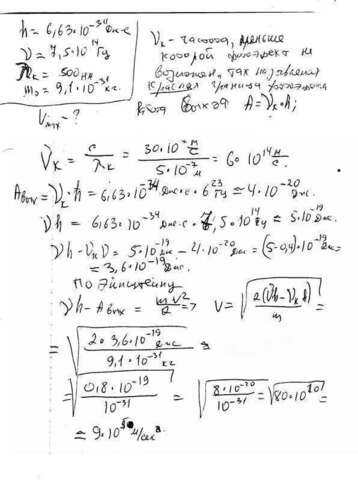 h = 6,63·10⁻³⁴ Дж·с
ν = 7,5·10¹⁴ Гц
λк = 500 нм
mэ = 9,1·10⁻³¹ кг.
Vmax - ?
νк - частота, меньше
которой фотоэффект не
возможен, так
красная граница фотоэффекта
A = νк·h;
Vк = c/λк = 30·10⁻⁷ м/с / 5·10⁻⁷ м = 6·10¹⁴ м/с.
Aвых = νк·h = 6,63·10⁻³⁴ Дж·с · 6²³ Гц ≈ 4·10⁻²⁰ Дж.
νh = 6,63·10⁻³⁴ Дж·с · 7,5·10¹⁴ Гц ≈ 5·10⁻¹⁹ Дж.
νh - νкh = 5·10⁻¹⁹ Дж - 4·10⁻²⁰ Дж = (5-0,4)·10⁻¹⁹ Дж =
= 3,6·10⁻¹⁹ Дж.
По Эйнштейну
νh - Aвых = mv²/2 => V = √(2(νh - νкh)/m) =
= √(2·3,6·10⁻¹⁹ Дж·с / 9,1·10⁻³¹ кг) =
= √(0,8·10⁻¹⁹ / 10⁻³¹) = √(8·10⁻²⁰ / 10⁻³¹) = √(80·10¹⁰) =
= 9·10⁵ м/сек